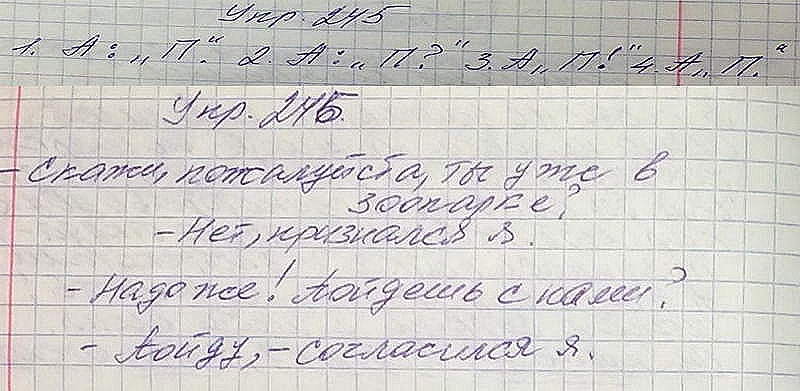 Упр. 245
1. А: „П“. 2. А: „П?“ 3. А„П!“ 4. А„П.“
Упр. 246.
- Скажи, пожалуйста, ты уже в
зоопарке?
- Нет, признался я.
- Надо же! Пойдешь с нами?
- Пойду, - согласился я.